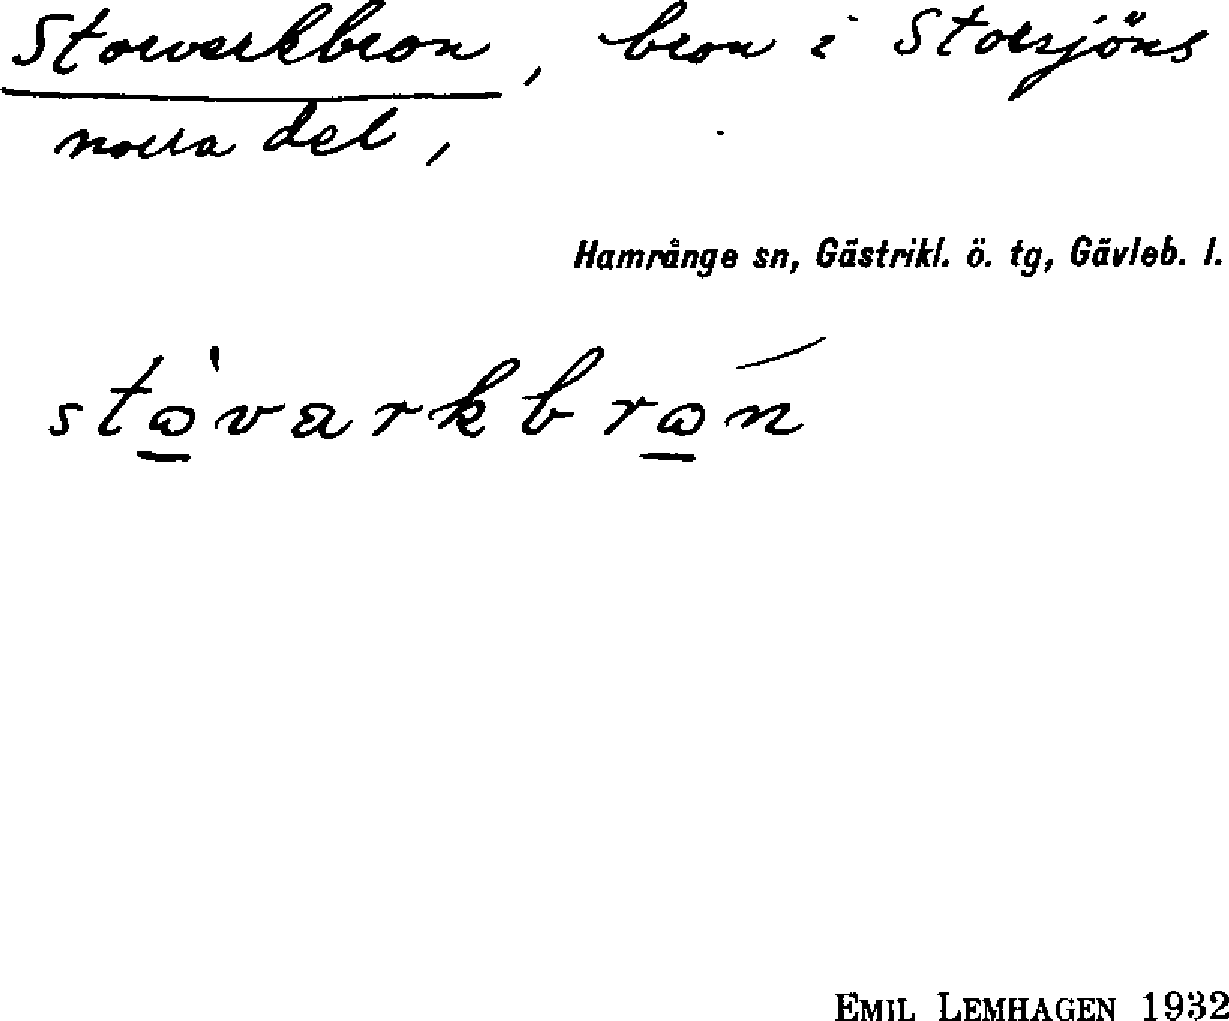 Storvarkbron, bron i Storsjöns
norra del,
Hamrånge sn, Gästrikl. ö. tg, Gävleb. l.
stὼ̲varkbrω̲ń
EMIL LEMHAGEN 1932